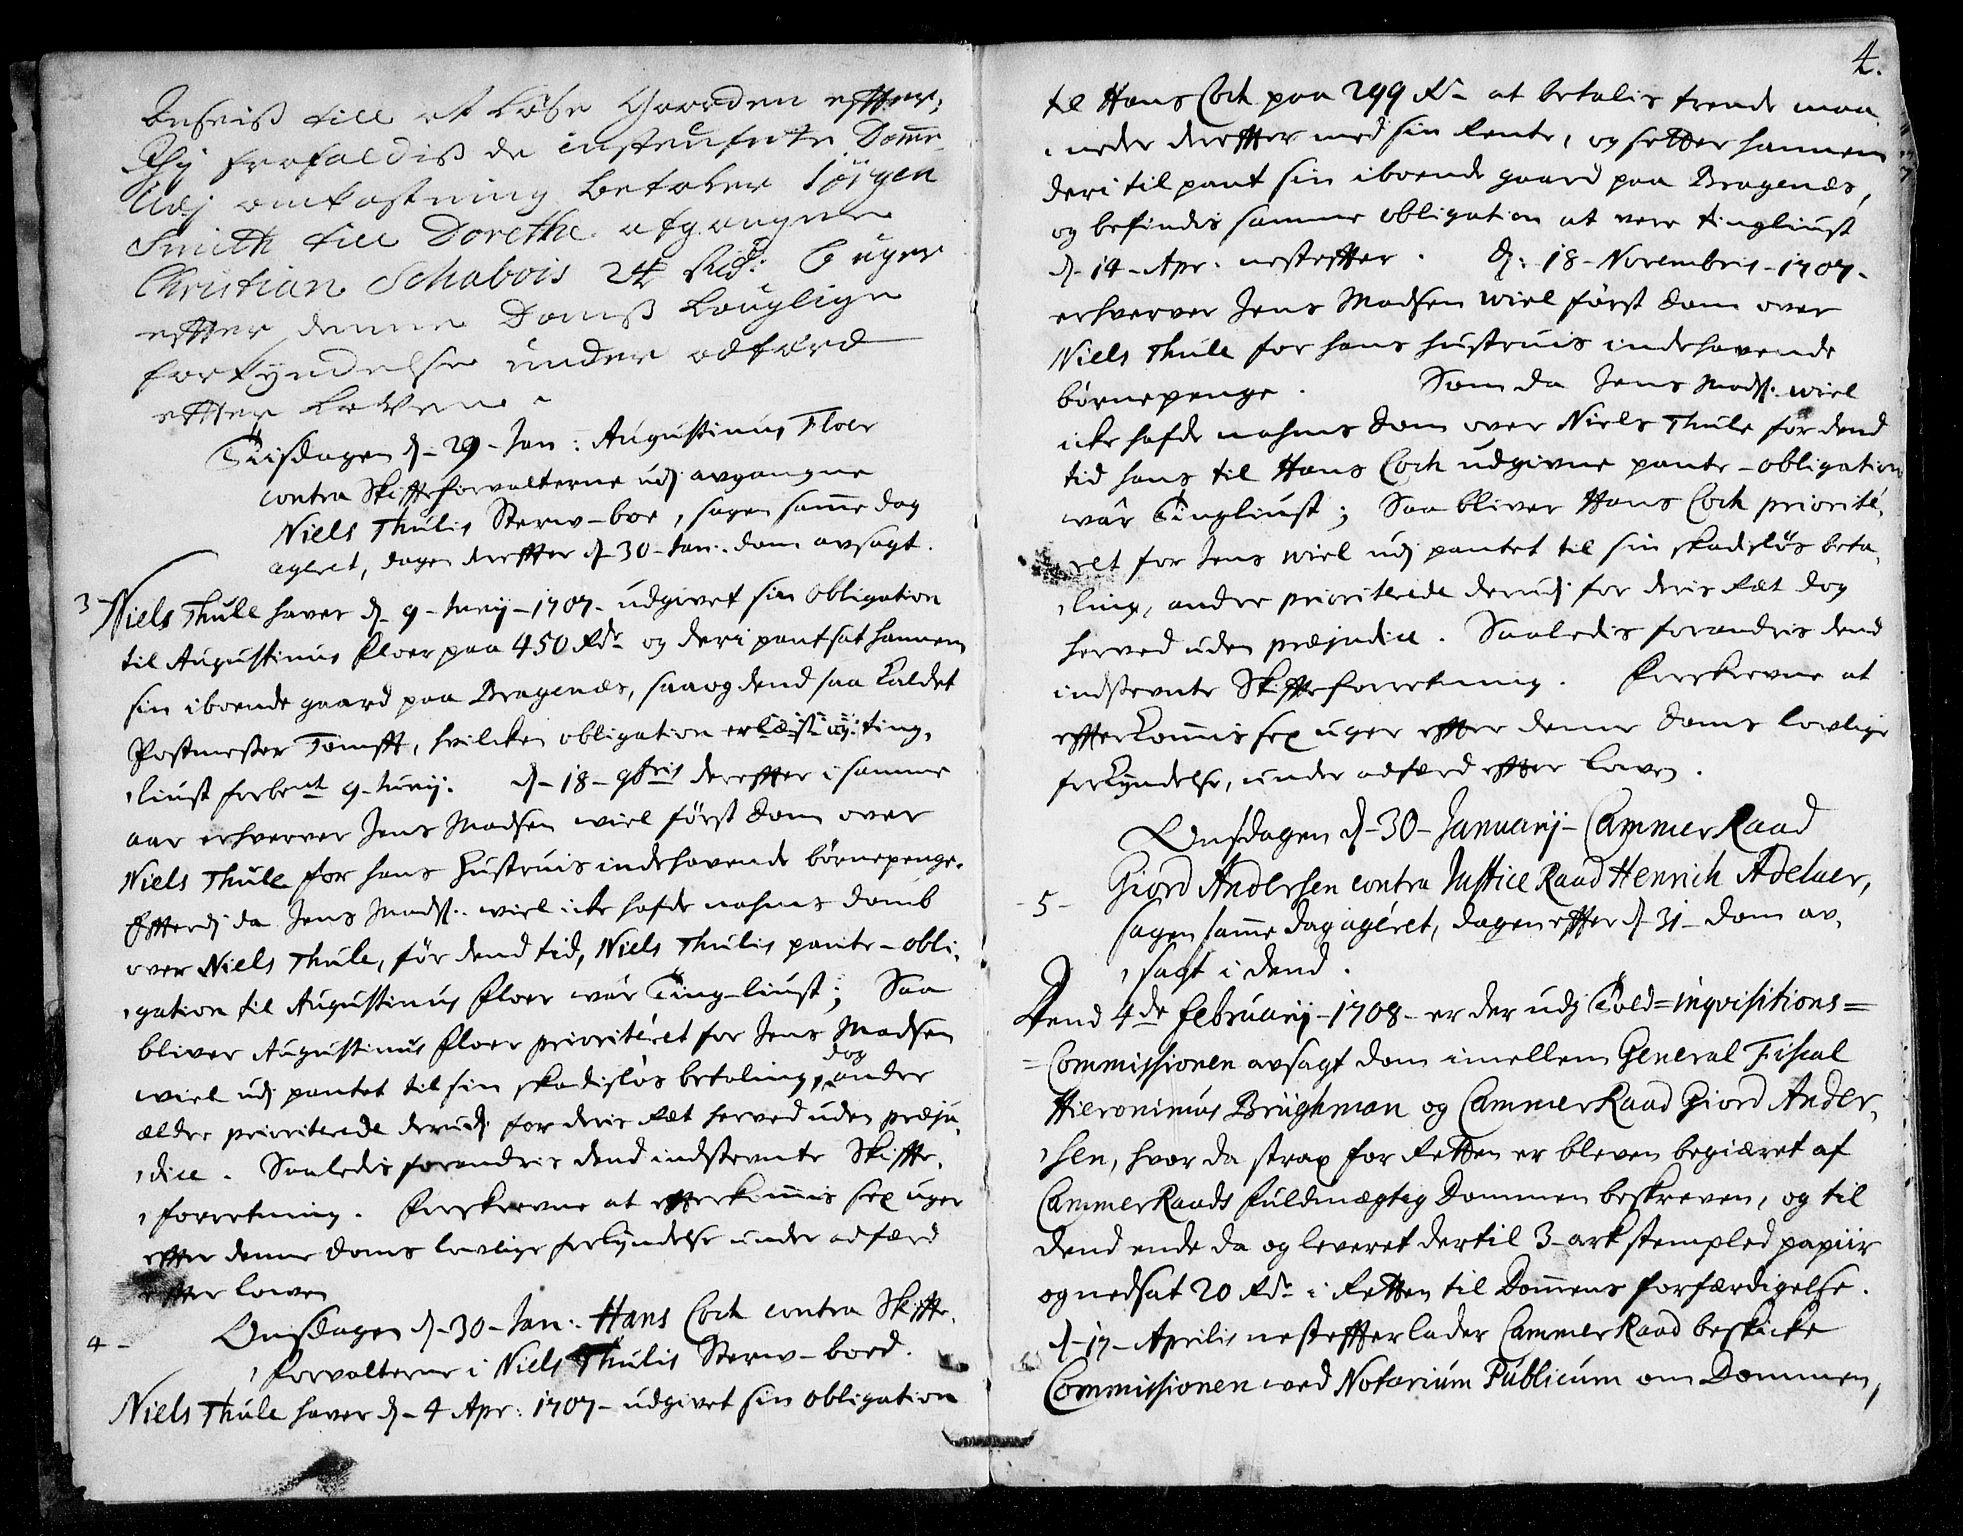 beseiß till at Löse Gaarden effter,
Thj frafaldiß de instenfnte Domme
Udj omkostning betaler Jörgen
Smith till Dorethe afgangne
Christian Schabois 24 Rdr: 6 uger
effter denne Domß Louglige
forkyndelse under adfærd
effter Loven.
Tiisdagen d. 29. Jan: Augustinus Floer
contra Skifteforvalterne udj avgangne
Niels Thulis Sterv-boe, sagen samme dag
ageret, dagen dereffter d. 30. Jan. dom avsagt.
3 - Niels Thule haver d. 9. Junij 1707. udgivet sin obligation
til Augustinus Floer paa 450 Rdr og deri pantsat hannem
sin iboende gaard paa Bragenæs, saa og dend saa kaldet
Postmester Tomfft, hvilcken obligation er læst og ting-
liust forbent 9. Junij. d. 18. 9bris dereffter i samme
aar erhverver Jens Madsen Wiel först dom over
Niels Thule for hans Hustruis indehavende börnepenge.
Effterdj da Jens Mads. Wiel icke hafde nogens domb
over Niels Thule, för dend tid, Niels Thulis pante-obli-
gation til Augustinus Floer var Ting-liust; Saa
bliver Augustinus Floer prioritéret for Jens Madsen
Wiel udj pantet til sin skadislös betaling, dog andre
ældre prioriterede derudj for deris Ræt herved uden præju-
dice. Saaledis forandris dend indstevnte Skiffte-
forretning. Forskrevne at effterkommis sex uger
effter denne doms lovlige forkyndelse under adfærd
effter lowen
4 - Onsdagen d. 30. Jan: Hans Coch contra Skiffte-
forvalterne i Niels Thulis Sterv-boed.
Niels Thule haver d. 4 Apr: 1707. udgivet sin obligation
4.
til Hans Coch paa 299 Rdr at betalis trende maa-
neder dereffter med sin Rente, og setter hannem
deri til pant sin iboende gaard paa Bragenæs,
og befindis samme obligation at vere tingliust
d. 14. Apr. nesteffter. d: 18. Novembris 1707.
erhverver Jens Madsen Wiel först dom over
Niels Thule for hans hustruis indehavende
börnepenge. Som da Jens Mads. Wiel
icke hafde nogens dom over Niels Thule för dend
tid hans til Hans Coch udgivne pante-obligation
vâr Tingliust; Saa bliver Hans Coch priorité-
ret for Jens Wiel udj pantet til sin skadislös beta-
ling, andre prioriterede derudj for deris Ræt dog
herved uden præjudice. Saaledis forandris dend
indstevnte Skiffteforretning. Forskrevne at
effterkommis sex uger effter denne doms lovlige
forkyndelse, under adfærd effter lowen.
Onsdagen d. 30. Januarij - Cammer Raad
5 - Giord Andersen contra Justice Raad Henrich Adeluer,
sagen samme dag agéret, dagen effter d. 31. dom av-
sagt i dend.
Dend 4de Februarij - 1708 - er der udj Told=inqvisitions=
=Commissionen avsagt dom imellem General Fiscal
Hieronimus Brüghman og Cammer Raad Giord Ander-
sen, hvor da strax for Retten er bleven begiæret af
Cammer Raads fuldmægtig Dommen beskreven, og til
dend ende da og leveret dertil 3 ark stempled papiir
og nedsat 20 Rdr i Retten til Dommens forfærdigelse.
d. 17. Aprilis nesteffter lader Cammer Raad beskicke
Commissionen ved Notarium Publicum om Dommen,